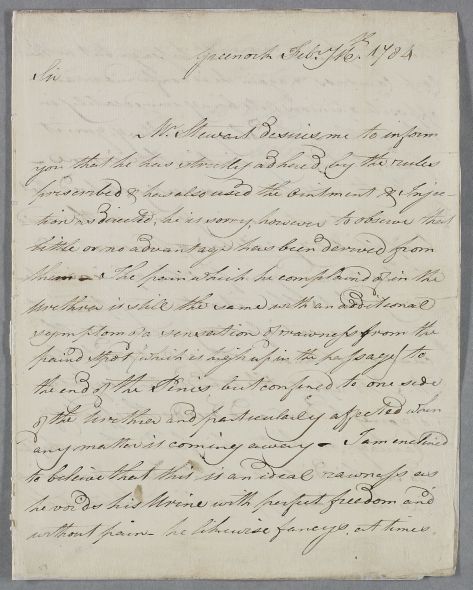 Greenock Feb:ry 16.th 1784
Sir
Mr Stewart desires me to inform
you that he has strictly adhered by the rules
prescribed & has also used the Ointment & Injec-
tion as directed, he is sorry, however to observe that
little or no advantage has been derived from
them - The pain which he complain'd of in the
Urethra is still the same with an additional
symptom viz a sensation of rawness from the
pain'd Spot (which is high up in the passage) to
the end of the Penis, but confined to one side
of the Urethra and particularly affected when
any matter is coming away - I am enclined
to beleive that this is an ideal rawness as
he voids his Urine with perfect freedom and
without pain - he likewise fancys, at times